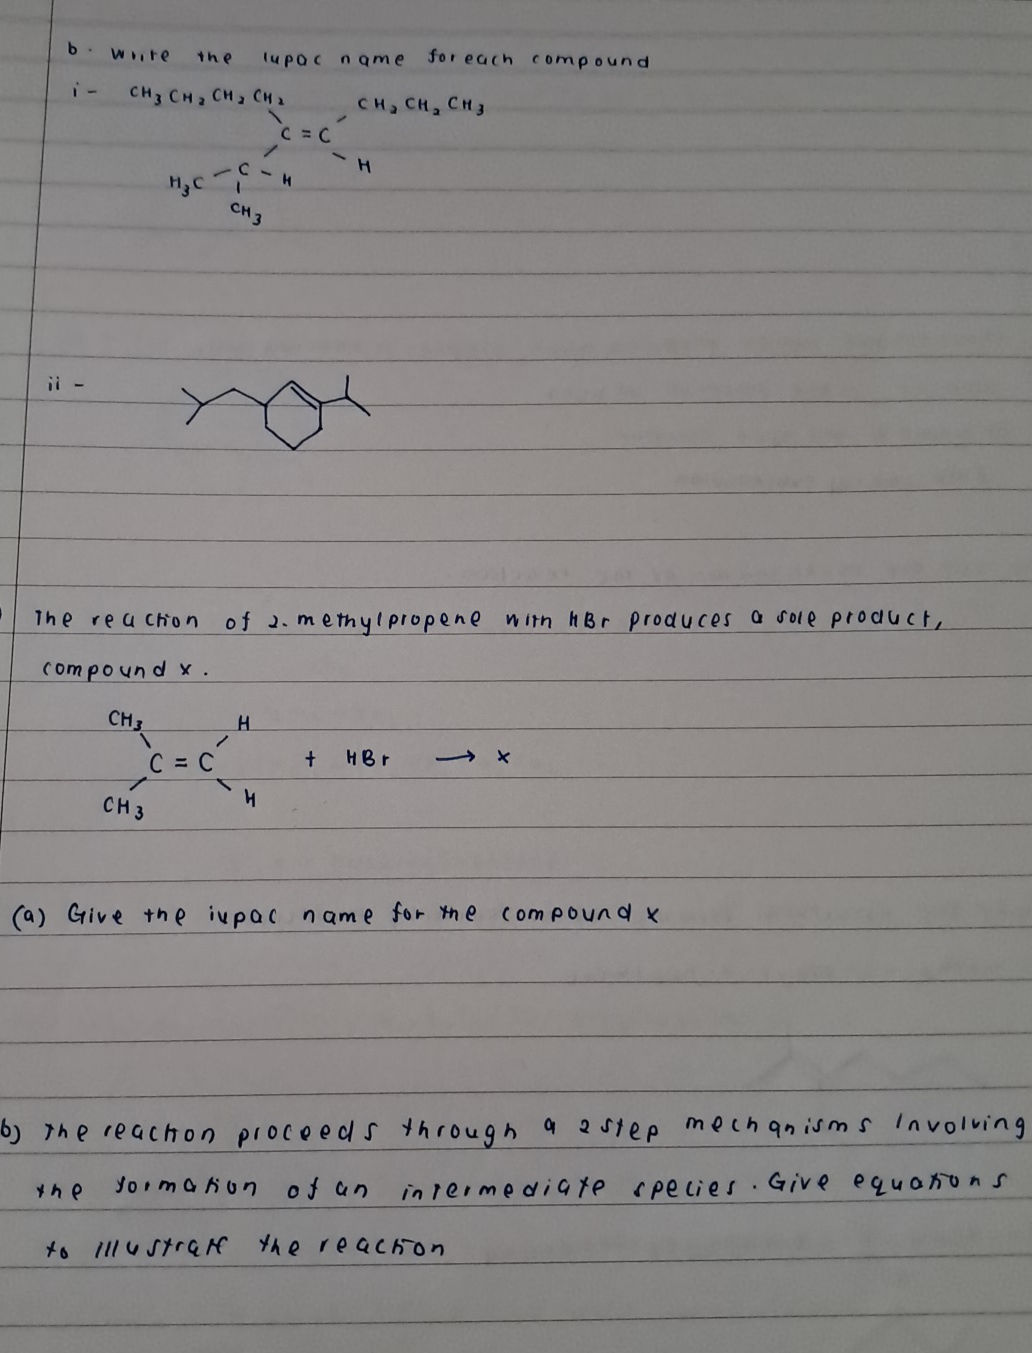 b. Write the iupac name for each compound
i - CH3 CH2 CH2 CH2 CH2 CH2 CH3
C = C
H3C - C - H H
CH3
ii -
The reaction of 2-methylpropene with HBr produces a sole product,
compound x.
CH3 H
C = C + HBr → x
CH3 H
(a) Give the iupac name for the compound x
b) The reaction proceeds through a 2 step mechanisms involving
the formation of an intermediate species. Give equations
to illustrate the reaction